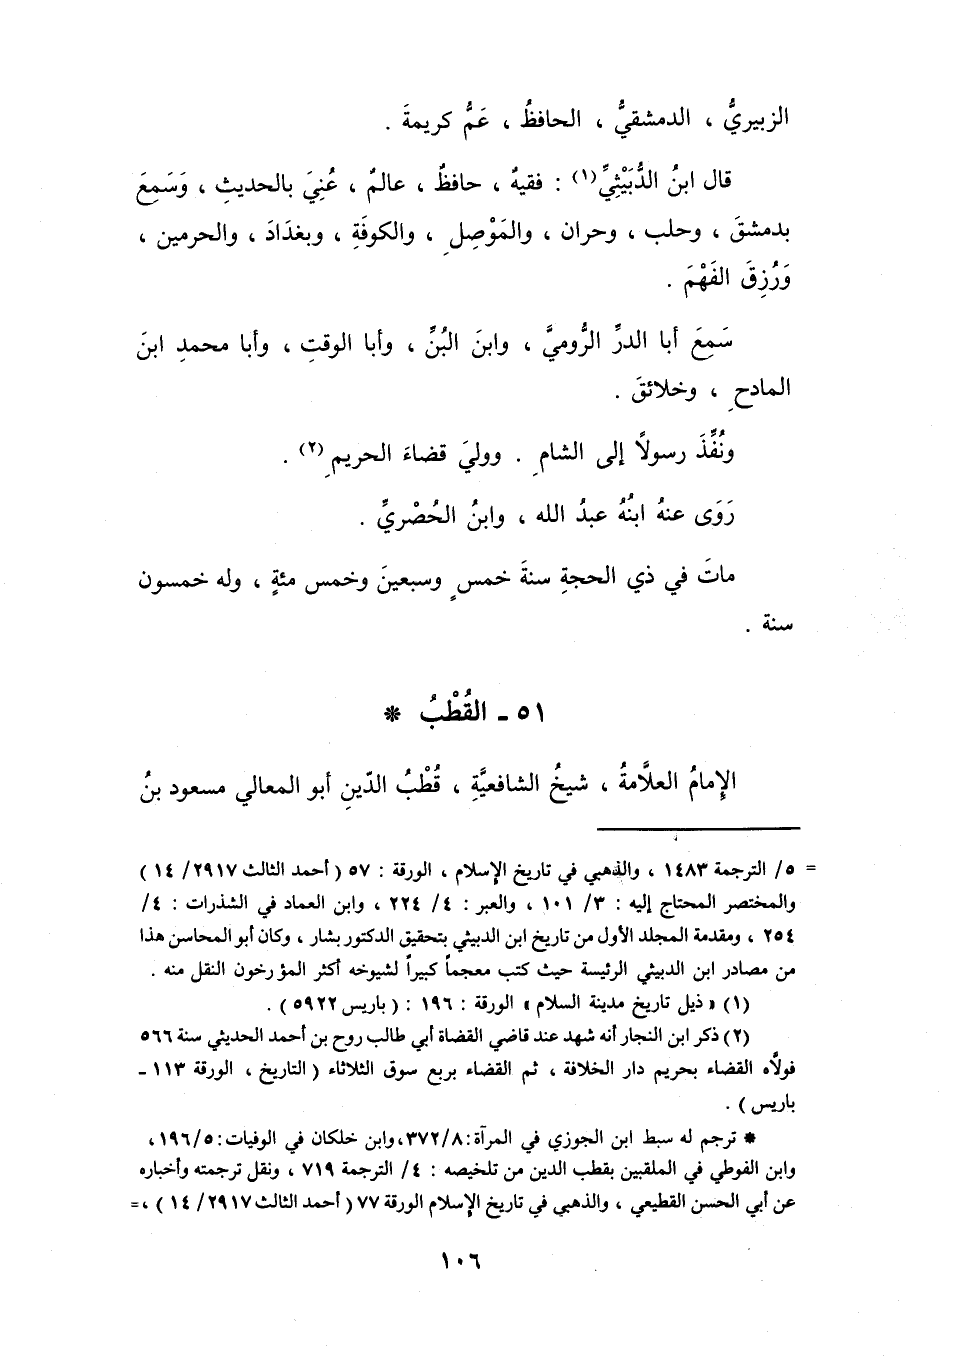 الزبيريُّ ، الدمشقيُّ ، الحافظُ ، عَمُّ كريمةَ .
قال ابنُ الدُّبَيْثِيِّ(١) : فقيهٌ ، حافظٌ ، عالمٌ ، عُنِيَ بالحديثِ ، وَسَمِعَ
بدمشقَ ، وحلب ، وحران ، والمَوْصِلِ ، والكوفَةِ ، وبغدَادَ ، والحرمين ،
وَرُزِقَ الفَهْمَ .
سَمِعَ أبا الدرِّ الرُّوميَّ ، وابنَ البُنِّ ، وأبا الوقتِ ، وأبا محمدِ ابنَ
المادحِ ، وخلائقَ .
ونُفِّذَ رسولاً إلى الشامِ . ووليَ قضاءَ الحريمِ(٢) .
رَوَى عنهُ ابنُهُ عبدُ الله ، وابنُ الحُصْريِّ .
ماتَ في ذي الحجةِ سنةَ خمسٍ وسبعينَ وخمس مئةٍ ، وله خمسون
سنة .
٥١ - القُطْبُ *
الإِمامُ العلَّامةُ ، شيخُ الشافعيَّةِ ، قُطْبُ الدّينِ أبو المعالي مسعود بنُ
= ٥/ الترجمة ١٤٨٣ ، والذهبي في تاريخ الإسلام ، الورقة : ٥٧ ( أحمد الثالث ٢٩١٧/ ١٤ )
والمختصر المحتاج إليه : ٣/ ١٠١ ، والعبر : ٤/ ٢٢٤ ، وابن العماد في الشذرات : ٤/
٢٥٤ ، ومقدمة المجلد الأول من تاريخ ابن الدبيثي بتحقيق الدكتور بشار ، وكان أبو المحاسن هذا
من مصادر ابن الدبيثي الرئيسة حيث كتب معجماً كبيراً لشيوخه أكثر المؤرخون النقل منه .
(١) « ذيل تاريخ مدينة السلام » الورقة : ١٩٦ : ( باريس ٥٩٢٢ ) .
(٢) ذكر ابن النجار أنه شهد عند قاضي القضاة أبي طالب روح بن أحمد الحديثي سنة ٥٦٦
فولَّاه القضاء بحريم دار الخلافة ، ثم القضاء بربع سوق الثلاثاء ( التاريخ ، الورقة ١١٣ -
باريس ) .
* ترجم له سبط ابن الجوزي في المرآة : ٣٧٢/٨ ، وابن خلكان في الوفيات : ١٩٦/٥ ،
وابن الفوطي في الملقبين بقطب الدين من تلخيصه : ٤/ الترجمة ٧١٩ ، ونقل ترجمته وأخباره
عن أبي الحسن القطيعي ، والذهبي في تاريخ الإسلام الورقة ٧٧ ( أحمد الثالث ٢٩١٧/ ١٤ ) ، =
١٠٦